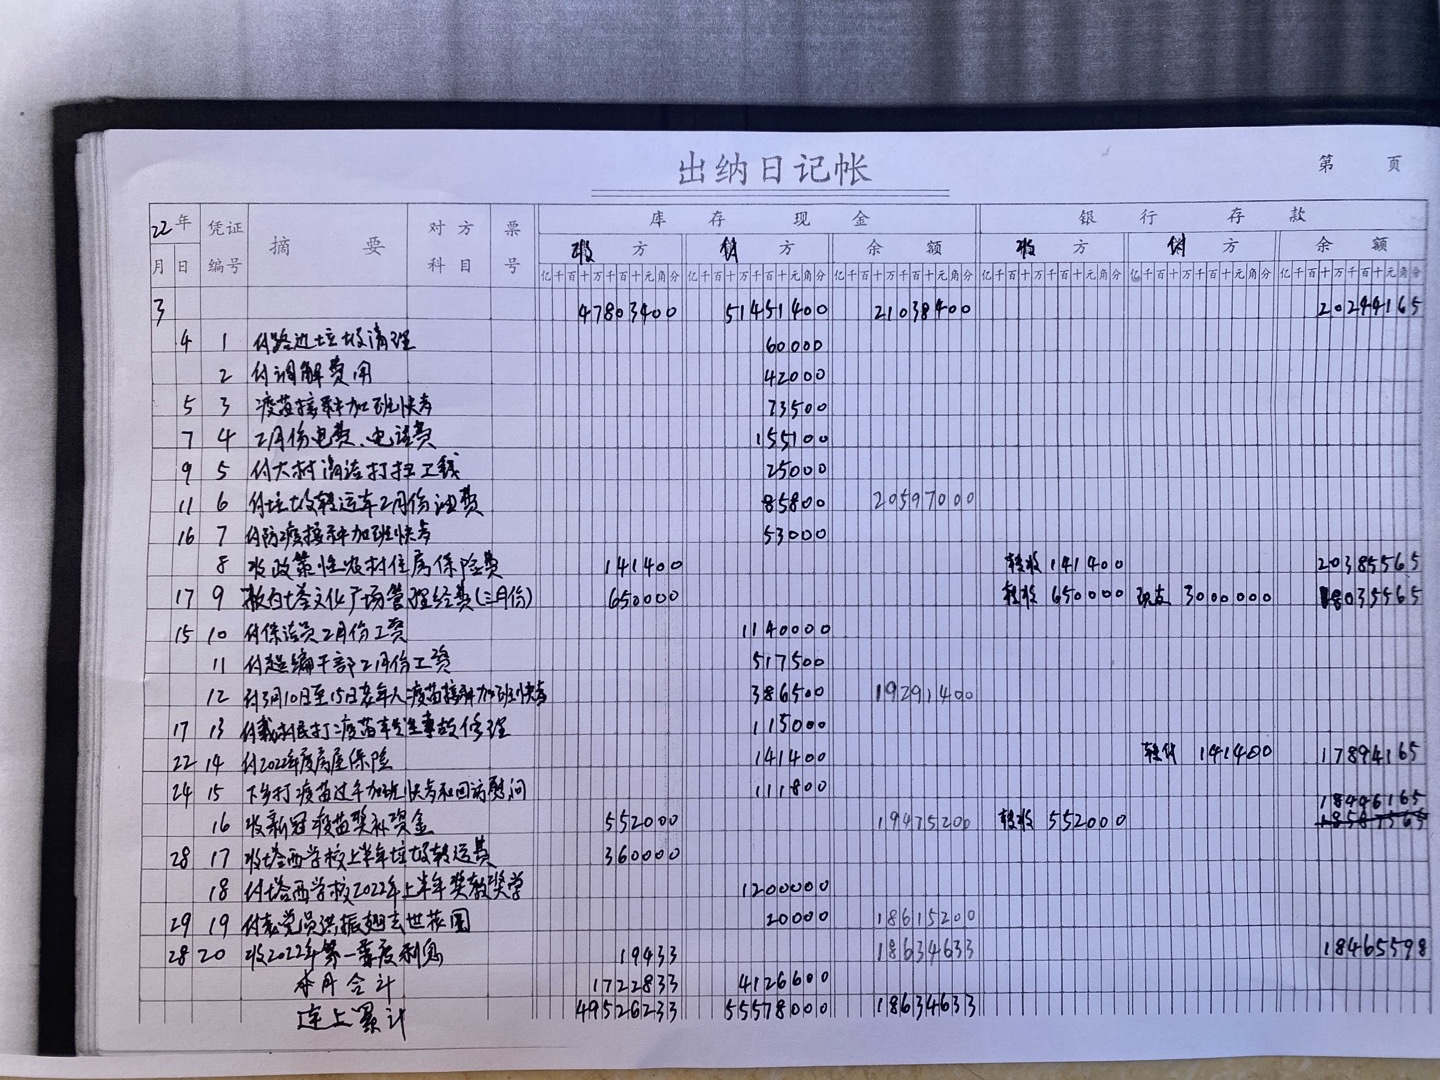 出纳日记帐
第 页
22年 凭证编号 摘要 对方科目 票号 库存现金 银行存款
月 日 收方 付方 余额 收方 付方 余额
亿千百十万千百十元角分 亿千百十万千百十元角分 亿千百十万千百十元角分 亿千百十万千百十元角分 亿千百十万千百十元角分 亿千百十万千百十元角分
3 47803400 51451400 21038400 20244165
4 1 付路边垃圾清理 60000
2 付调解费用 42000
5 3 疫苗接种加班快考 73500
7 4 2月份电费、电话费 155100
9 5 付大村清洁打扫工钱 25000
11 6 付垃圾转运车2月份油费 85800 20597000
16 7 付防疫接种加班快考 53000
8 收政策性农村住房保险费 141400 转收 141400 20385565
17 9 塔文化广场管理经费(三月份) 650000 转收 650000 现支 3000000 18035565
15 10 付保洁员2月份工资 1140000
11 付超编干部2月份工资 517500
12 付3月10日至15日老年人疫苗接种加班快考 386500 19291400
17 13 付载村民打疫苗车发生事故修理 115000
22 14 付2022年度房屋保险 141400 转付 141400 17894165
24 15 下乡打疫苗过午加班快考和回访慰问 111800
16 收新冠疫苗奖补资金 552000 19475200 转收 552000 18446165
28 17 收塔西学校上半年垃圾转运费 360000
18 付塔西学校2022年上半年奖教奖学 1200000
29 19 付老党员洪振翘去世花圈 20000 18615200
28 20 收2022年第一季度利息 19433 18634633 18465598
本月合计 1722833 4126600
连上累计 49526233 55578000 18634633